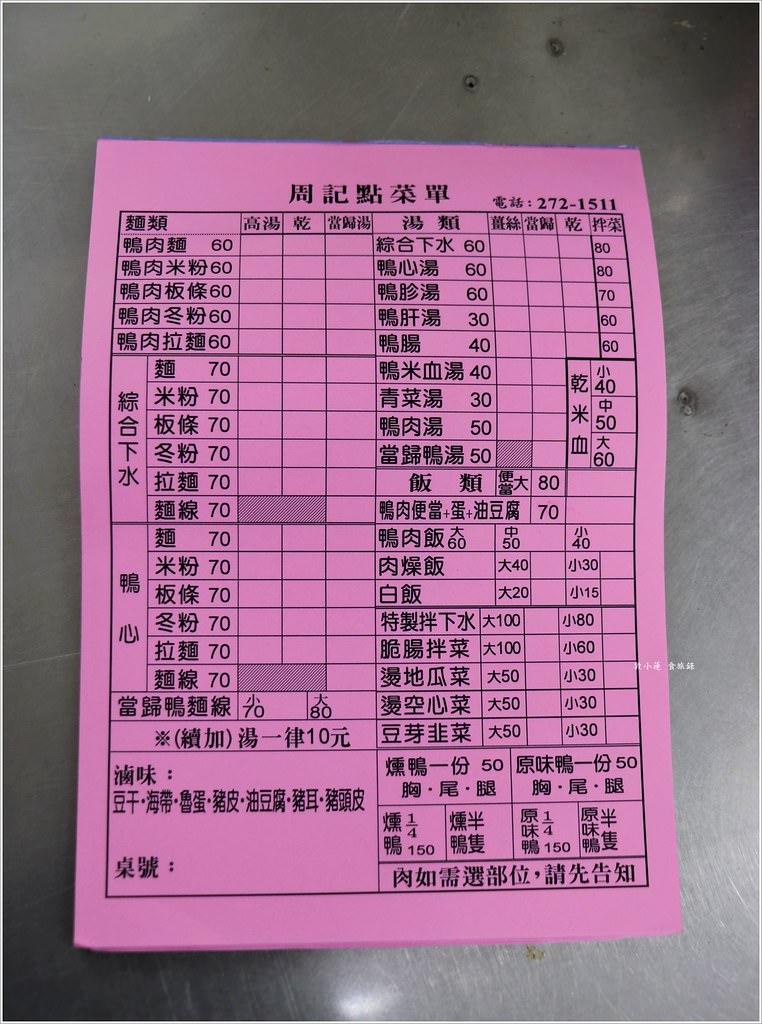 周記點菜單
電話：272-1511
麵類 高湯 乾 當歸湯
鴨肉麵 60
鴨肉米粉 60
鴨肉板條 60
鴨肉冬粉 60
鴨肉拉麵 60
綜合下水
麵 70
米粉 70
板條 70
冬粉 70
拉麵 70
麵線 70
鴨心
麵 70
米粉 70
板條 70
冬粉 70
拉麵 70
麵線 70
當歸鴨麵線 小70 大80
※(續加)湯一律10元
滷味：
豆干・海帶・魯蛋・豬皮・油豆腐・豬耳・豬頭皮
桌號：
湯類 薑絲 當歸 乾 拌菜
綜合下水 60 80
鴨心湯 60 80
鴨胗湯 60 70
鴨肝湯 30 60
鴨腸 40 60
鴨米血湯 40
青菜湯 30
鴨肉湯 50
當歸鴨湯 50
乾米血 小40 中50 大60
飯類 便當大 80
鴨肉便當+蛋+油豆腐 70
鴨肉飯 大60 中50 小40
肉燥飯 大40 小30
白飯 大20 小15
特製拌下水 大100 小80
脆腸拌菜 大100 小60
燙地瓜菜 大50 小30
燙空心菜 大50 小30
豆芽韭菜 大50 小30
燻鴨一份 50
胸・尾・腿
原味鴨一份 50
胸・尾・腿
燻鴨 1/4 150
燻鴨半隻
原味鴨 1/4 150
原味鴨半隻
肉如需選部位，請先告知